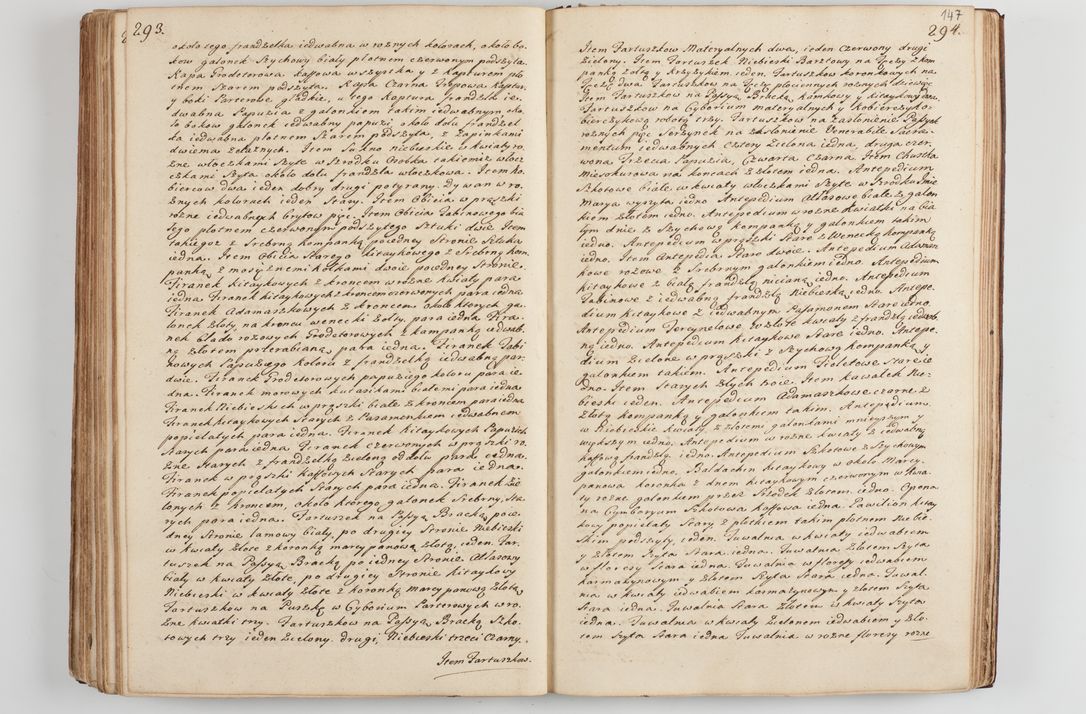 293.
około tego frandzelka iedwabna w roznych kolorach, około bo-
kow galonek Szychowy biały płotnem czerwonym podszyta.
Kapa Grodetorowa kaffowa wszystka y z kapturem płó-
tnem Szarem podszyta. Kapa Czarna Trypowa Kaptur
y boki Parterowe gładkie, u tego Kaptura frandzla ie-
dwabna Papuzia galonkiem takim iedwabnym oko-
ło bokow galonek iedwabny papuzi około dołu frandzel
ka iedwabna płotnem Szarem podszyta, z Zapinkami
dwiema żelaznych. Item Sukno niebieskie w kwiaty ro-
żne włoczkami Szyte w Szrodku Osobka takiemiż włocz
czkami Szyta około dołu frandzla włoczkowa. Item ko-
biercow dwa ieden dobry drugi potyrany. Dywan w ro-
żnych kolorach ieden Stary. Item Obicia w prążki
rożne iedwabnych brytow pięć. Item Obicia Tabinowego bia
łego płotnem czerwonym podszytego Sztuki dwie Item
takiegoż z Srebrną kompanką poiedney Stronie Sztuka
iedna. Item Obicia Starego kitaykowego z Srebrną kom
panką z mosyżnemi kołkami dwoie poiedney Stronie.
Firanek kitaykowych z kroncem w rożne kwiaty para
iedna Firanek kitaykowych z kroncem czerwonych para iedna
Firanek Adamaszkowych z kroncem, około ktorych ga-
lonek złoty, na kroncu wenecki żołty, para iedna Fira-
nek blado rożowych Grodetorowych z kampanką iedwab-
ną złotem przerabianą para iedna. Firanek Tabi
nowych Papużego koloru z frandzelką iedwabną par
dwie. Firanek Grodetorowych papużego koloru para ie-
dna. Firanek morowych kutasikami białemi para iedna
Firanek Niebieskich w prążki białe z kroncem para iedna
Firanek kitaykowych Starych z Pasamonkiem iedwabnem
popielatych para iedna. Firanek kitaykowych Papużich
Starych para iedna Firanek czerwonych w prążki ro-
żne Starych z frandzelką żieloną od dołu para iedna.
Firanek w prążki kaffowych Starych para iedna.
Firanek popielatych Starych para iedna. Firanek żie
lonych z kroncem, około ktorego galonek Srebrny, Sta
rych para iedna. Fartuszek na Passyą Bracką poie-
dney Stronie lamowy biały, po drugiey Stronie Niebieski
w kwiaty złote z koronką marcypanową złotą, ieden. Far-
tuszek na Passyą Bracką po iedney Stronie Atłasowy
biały w kwiaty złote, po drugiey Stronie kitaykowy
Niebieski w kwiaty złote z koronką marcypanową złotą
Fartuszkow na Puszkę w Cyborium Parterowych w ro-
żne kwiatki trzy. Fartuszkow na Passyą Bracką Szko-
towych trzy ieden żielony drugi Niebieski trzeci Czarny.
Item Fartuszkow.
147
294.
Item Fartuszkow Materyalnych dwa, ieden Czerwony drugi
żielony. Item Fartuszek Niebieski na z kom
panką żołtą y krzyżykiem ieden. Fartuszkow koronkowych na
dwa Fartuszkow na płociennych roznych dziewięć
Item Fartuszkow na Passyą Bracką y
Fartuszkow na Cyborium materyalnych y
roboty trzy. Fartuszkow na zasłonienie Passyi
roznych pięć na zasłonienie Venerabile Sacra-
mentum iedwabnych Cztery żielona iedna, druga czer-
wona Trzecia Papuzia, Czwarta Czarna. Item Chustka
na koncach z złotem iedna. Antepedium
Szkotowe białe w kwiaty włoczkami Szyte w Szrodku Imie
Marya wyszyta iedno Antepedium Atłasowe białe z galon
kiem złotem iedno. Antepedium w rożne kwiatki na bia
łym dnie z Szychową kompanką y galonkiem takim
iedno. Antepedium w prążki Stare z Wenecką kompanką
iedno. Item Antepedia Stare dwoie. Antepedium Adamasz
kowe rożowe z Srebrnym galonkiem iedno. Antepedium
kitaykowe z białą frandzlą nicianą iedno. Antepedium
Tabinowe z iedwabną frandzlą Niebieską iedno. Antepe-
dium kitaykowe z iedwabnym Pasamonem Stare iedno.
Antepedium Tercynelowe w złote kwiaty z frandzlą iedwab
ną iedno. Antepedium kitaykowe Stare iedno. Antepe-
dium żielone w prążki z Szychową kompanką y
galonkiem takiem. Antepedium Fioletowe Stare ie
dno. Item Starych złych troie. Item kawałek Nie-
bieski ieden. Antepedium Adamaszkowe czarne z
złotą kompanką y galonkiem takim. Antepedium
w Niebieskie kwiaty z złotemi galonkami mnieyszym y
większym iedno. Antepedium w rożne kwiaty z iedwabną
kaffową frandzlą iedno. Antepedium Szkotowe z Szychowym
galonkiem iedno. Baldachin kitaykowy w około Marcy-
panowa koronka z dnem kitaykowym czerwonym w kwia
ty rożne galonkiem przez Szrodek złotem iedno. Opona
na Cymboryum Szkotowa kaffowa iedna. Pawilion kitay
kowy popielaty Stary z płatkiem takim płotnem niebie
skim podszyty, ieden. Tuwalnia w kwiaty iedwabiem
y złotem Szyta Stara iedna. Tuwalnia złotem Szyta
w floresy Stara iedna. Tuwalnia w floresy iedwabiem
karmazynowym y złotem Szyta Stara iedna. Tuwal-
nia w kwiaty iedwabiem karmazynowym y złotem Szyta
Stara iedna. Tuwalnia Stara złotem w kwiaty Szyta
iedna. Tuwalnia w kwiaty żielonem iedwabiem y zło-
tem Szyta Stara iedna Tuwalnia w rożne floresy rożne